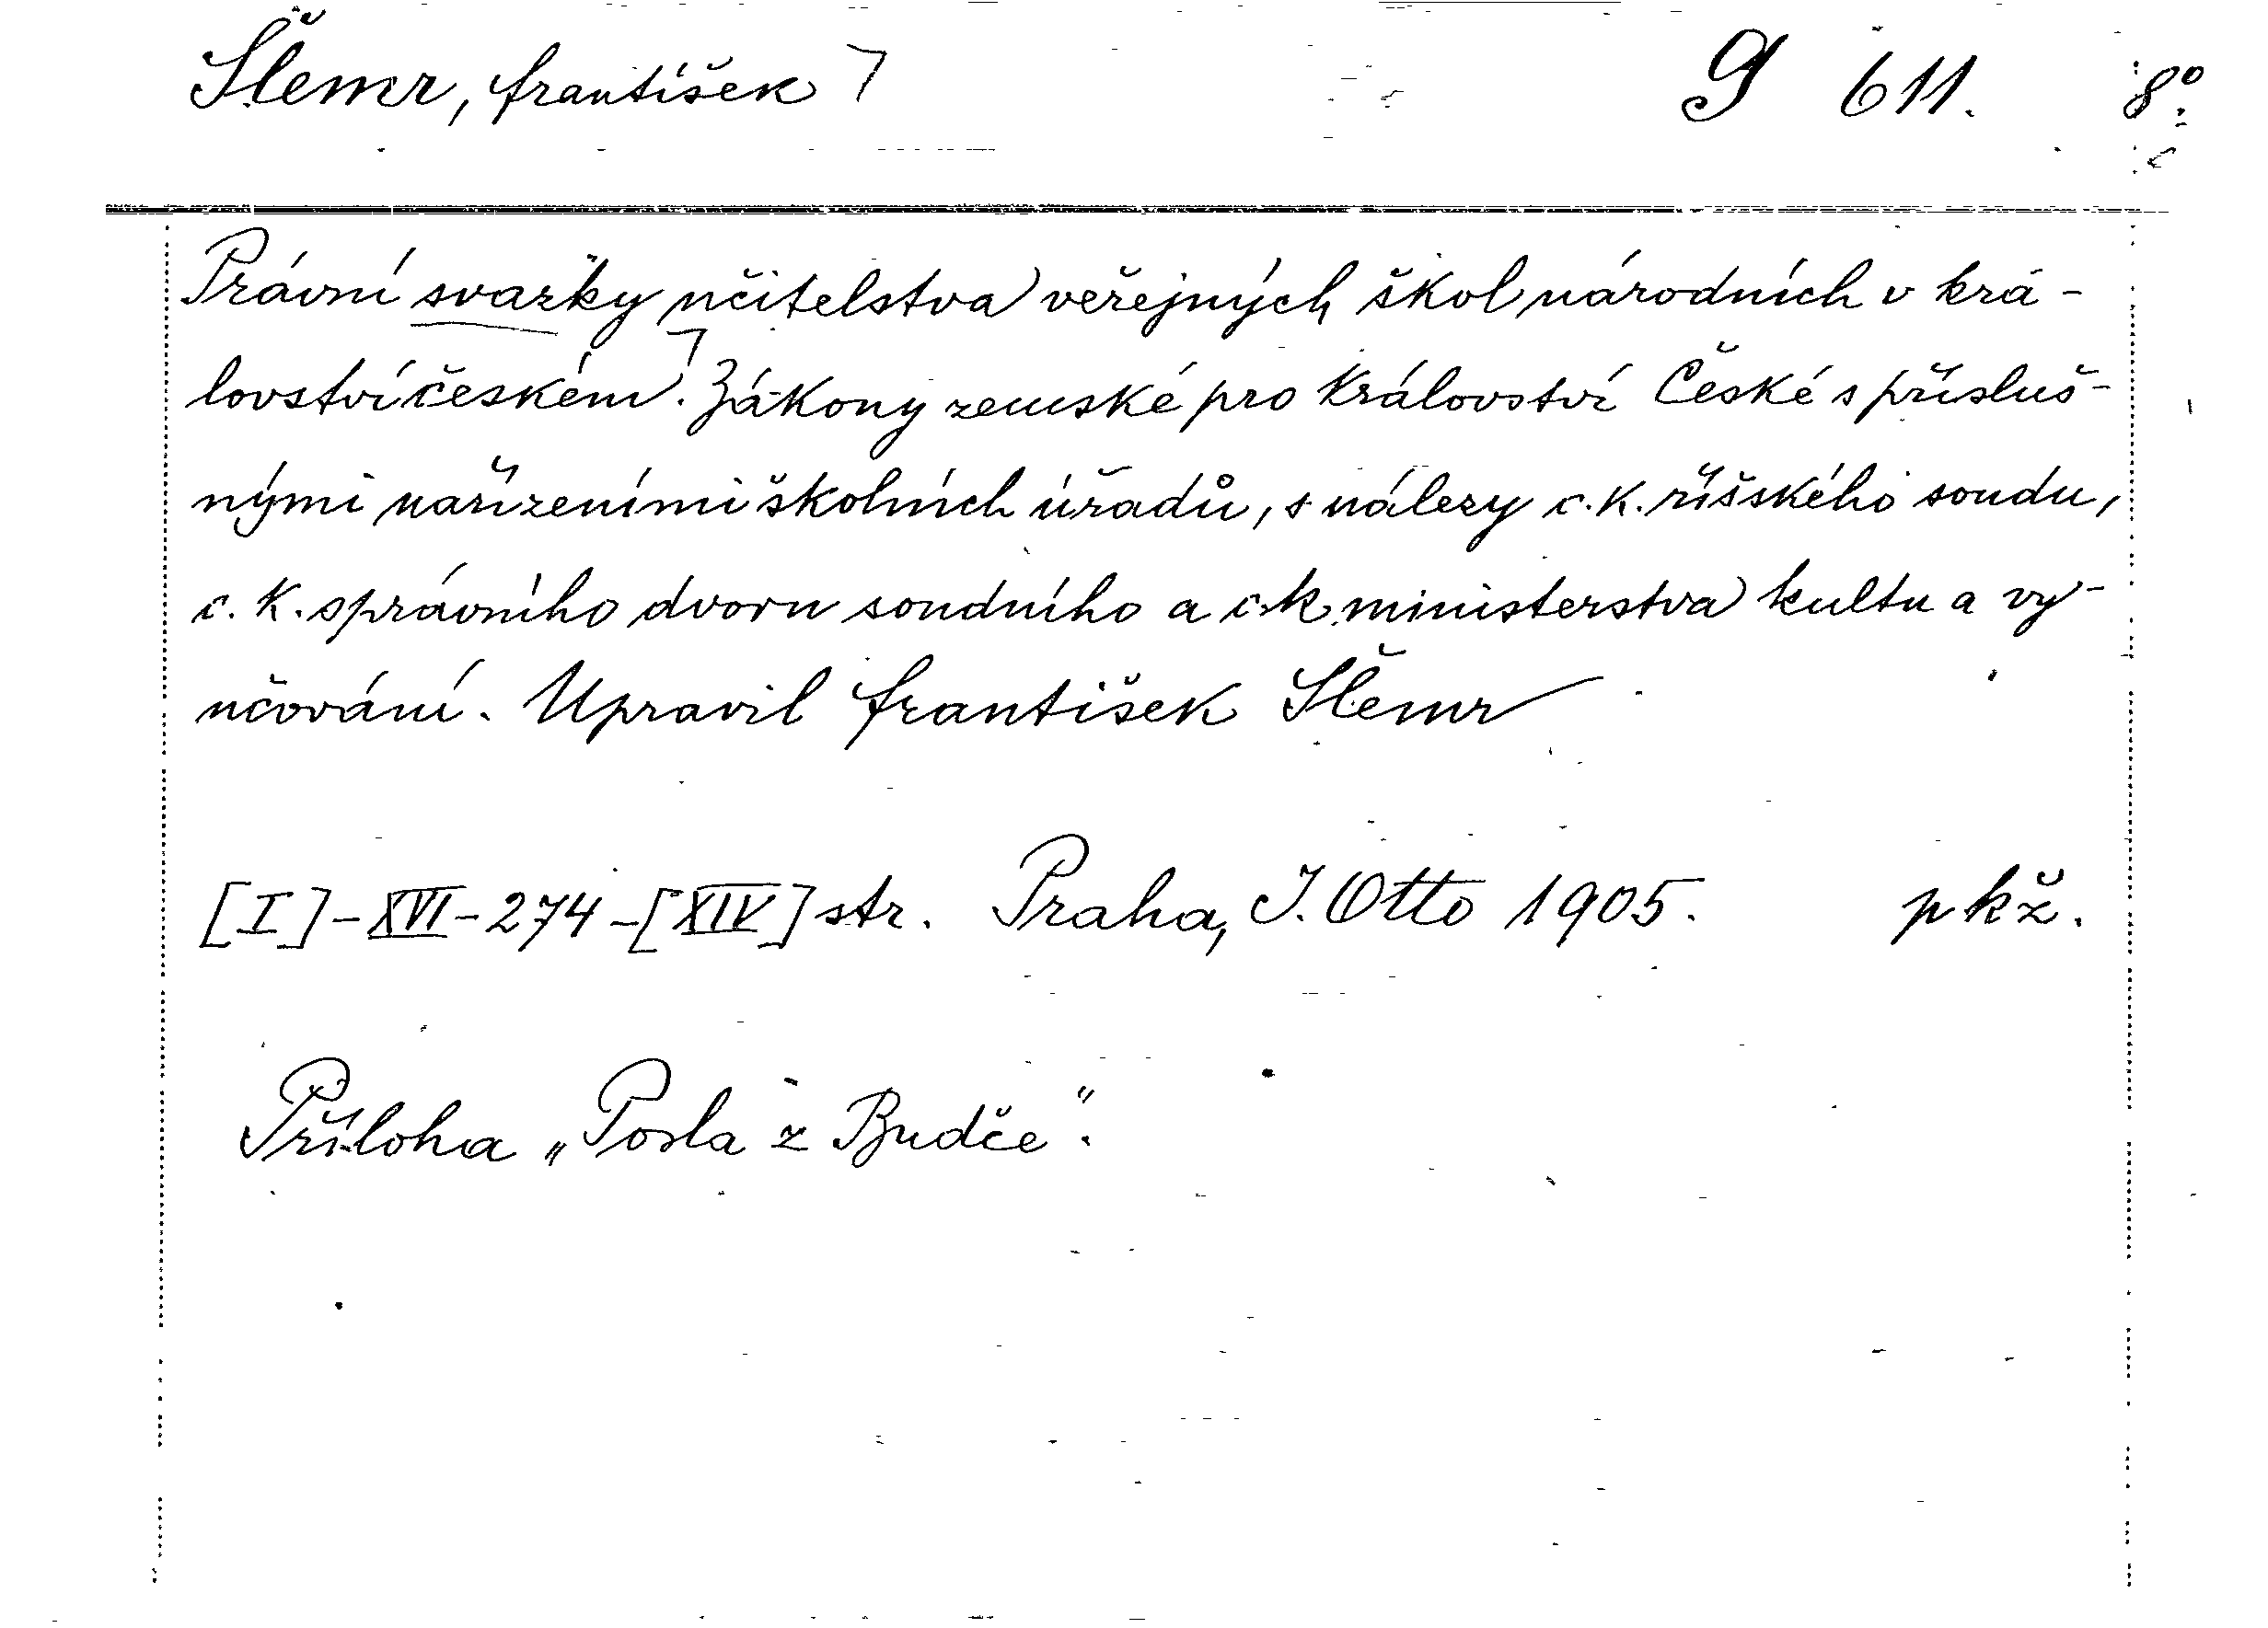 Šlemr, František ┐ G 611. 8°.
Právní svazky učitelstva veřejných škol národních v krá-
lovství českém.┐ Zákony zemské pro Království České s přísluš-
nými nařízeními školních úřadů, s nálezy c.k. říšského soudu,
c.k. správního dvoru soudního a c.k. ministerstva kultu a vy-
učování. Upravil František Šlemr
[I]-XVI-274-[XIV] str. Praha, J. Otto 1905. pkž.
Příloha „Posla z Budče".